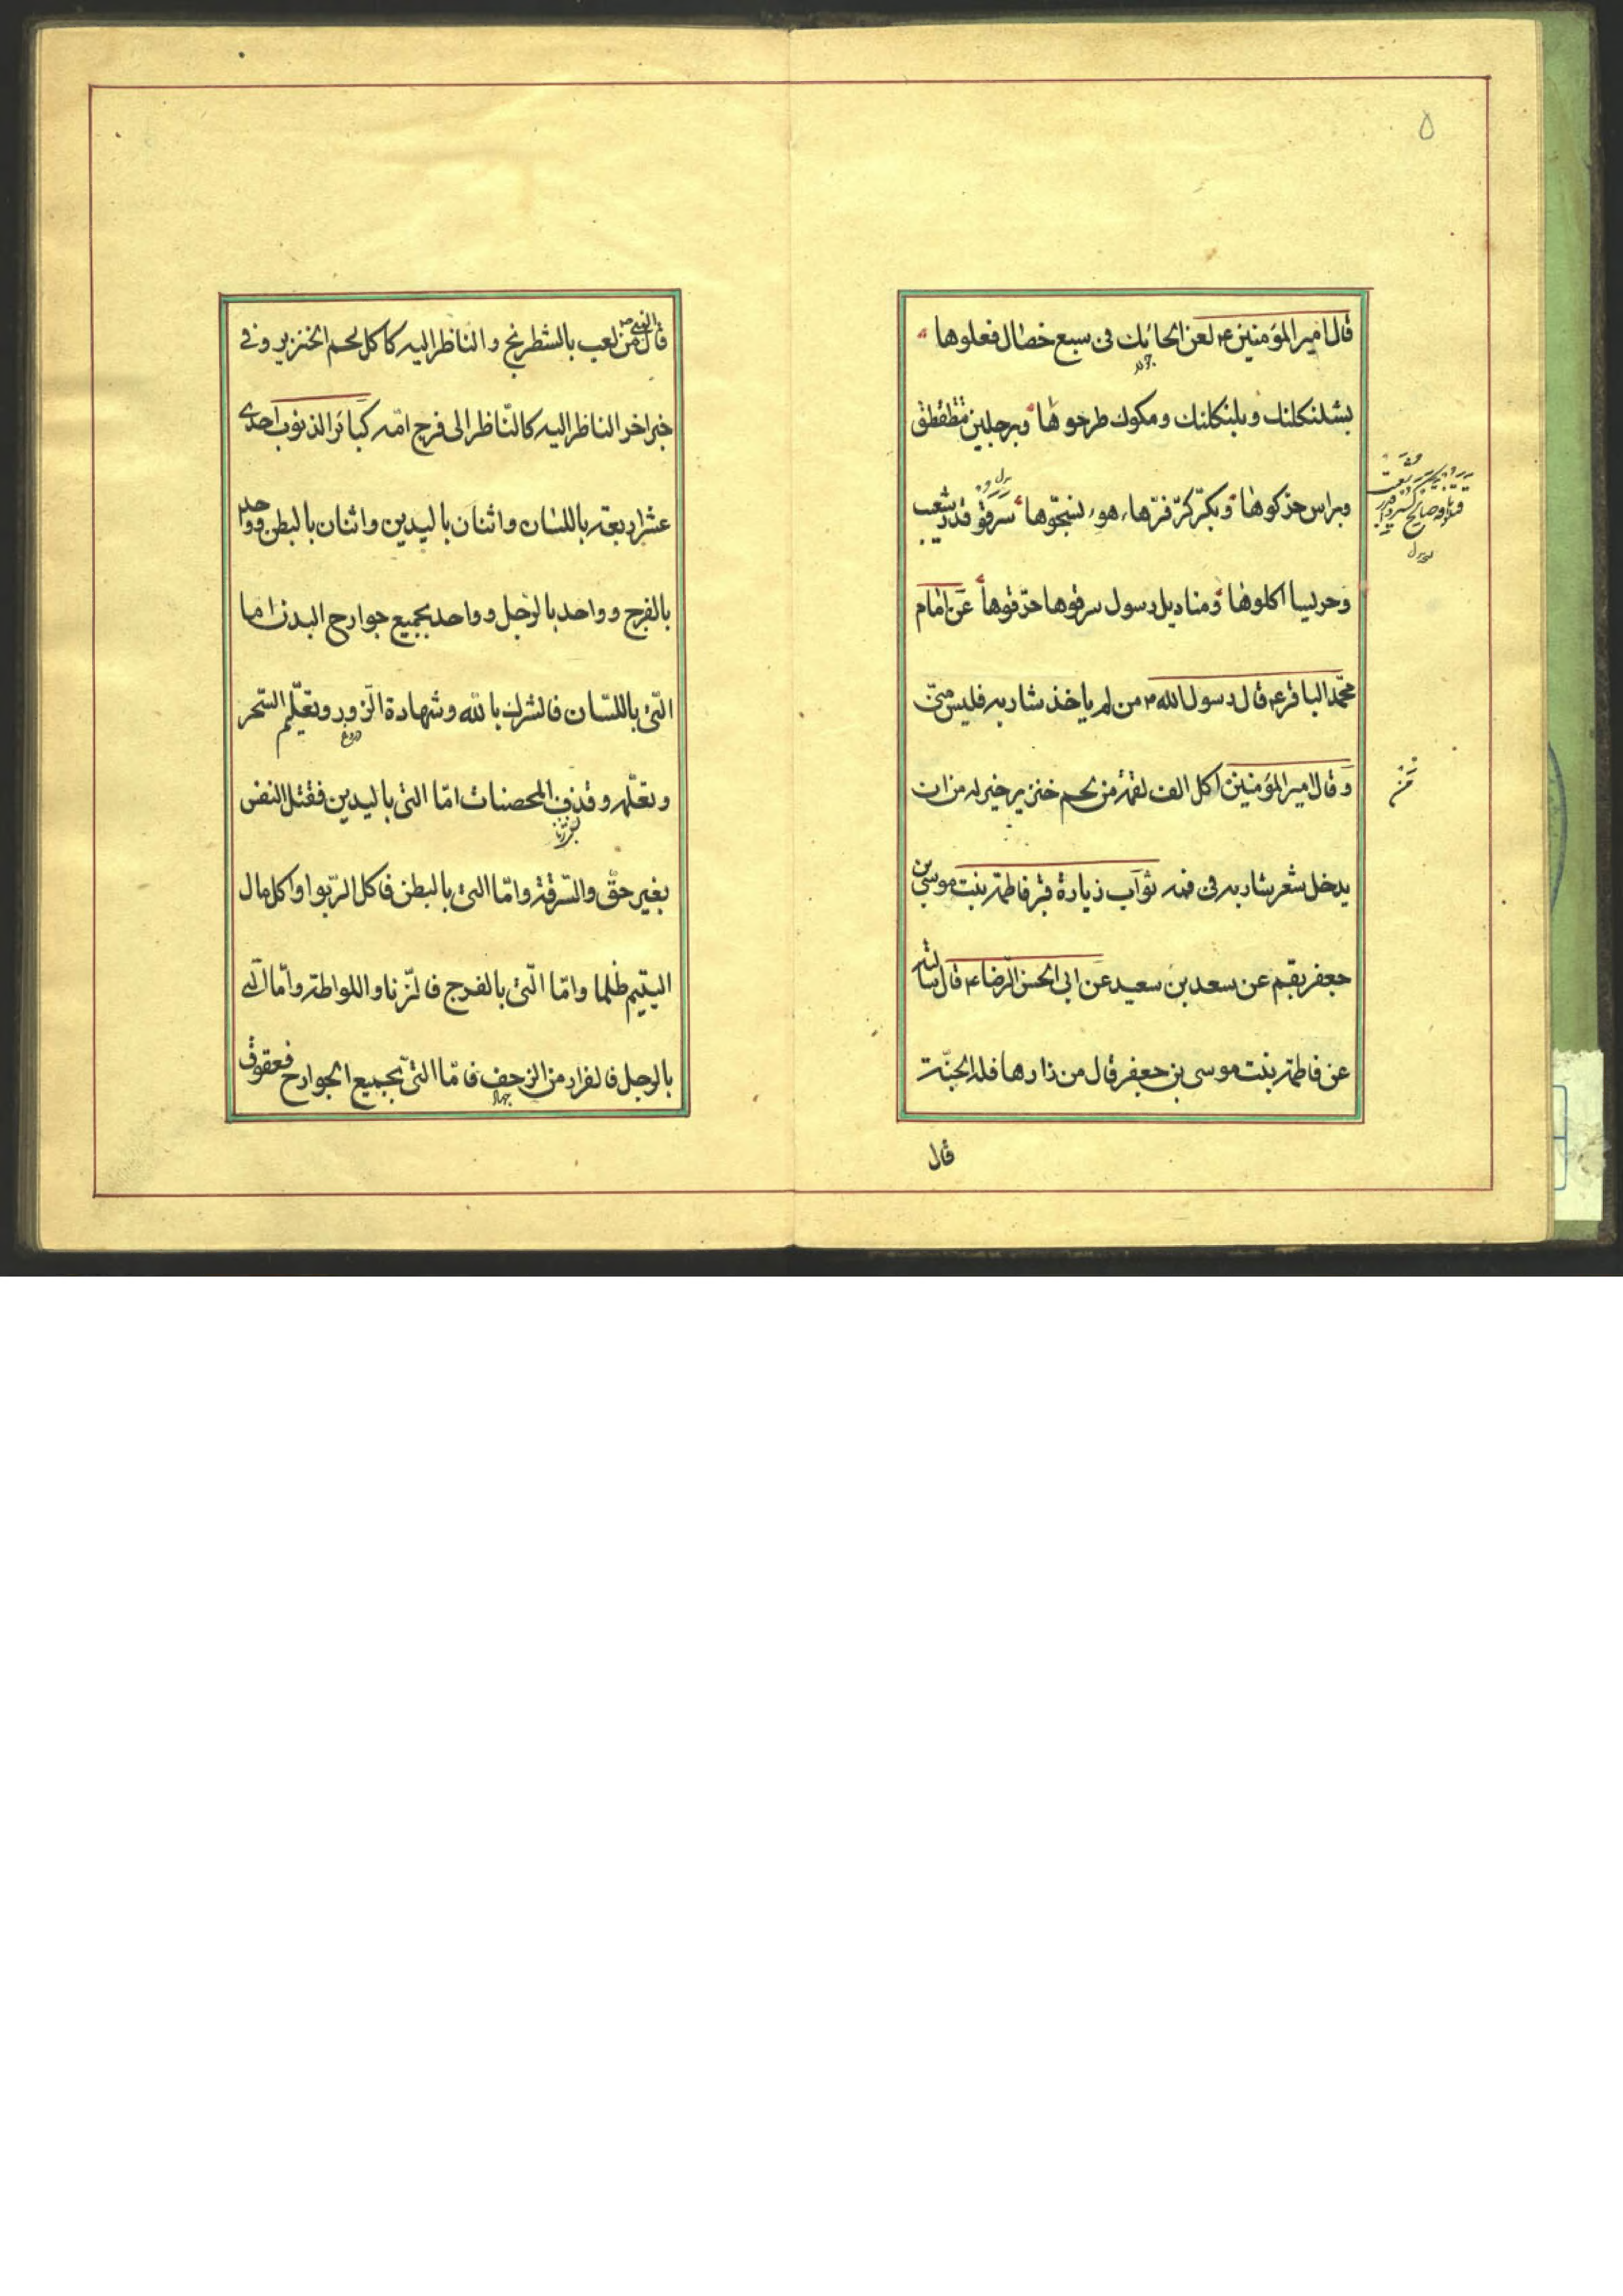 ۵
قال امیر المؤمنین ع لعن الحائك فی سبع خصال فعلوها
بشلنکلنك و بلبنکلنك و مکوك طرحوها و برجلین
و براس حذکوها و بکّر کرّ فرّها هو نسجّوها سرقو
و حریسا اکلوها و منادیل رسول سرقوها حرّقوها عن امام
محمّد الباقر ع قال رسول الله ص من لم یاخذ شاربه فلیس منّی
و قال امیر المؤمنین اکل الف لقمة من لحم خنزیر خیر له من ان
یدخل شعر شاربه فی فمه ثوآب زیارة قبر فاطمة بنت موسی بن
جعفر بقم عن سعد بن سعید عن ابی الحسن الرّضا ع قال سالته
عن فاطمة بنت موسی بن جعفر قال من زارها فله الجنّة
قال
قال النبی ص من لعب بالشطرنج و الناظر الیه کاکل لحم الخنزیر و فی
خبر اخر الناظر الیه کالنّاظر الی فرج امّه کبائر الذنوب احدی
عشر اربعة باللسان و اثنان بالیدین و اثنان بالبطن و واحد
بالفرج و واحد بالرجل و واحد بجمیع جوارح البدن اما
التّی باللسّان فالشرك بالله و شهادة الزّور و تعلّیم السّحر
دروغ
و تعلّمه و قذف المحصنات امّا التی بالیدین فقتل النفس
بغیر حقّ و السّرقة و امّا التی بالبطن فاکل الرّبوا و اکل مال
الیتیم ظلما و امّا التّی بالفرج فالزّنا و اللواطة و امّا الّتی
بالرجل فالفرار من الزحف فامّا التیّ بجمیع الجوارح فعقوق
جهاد